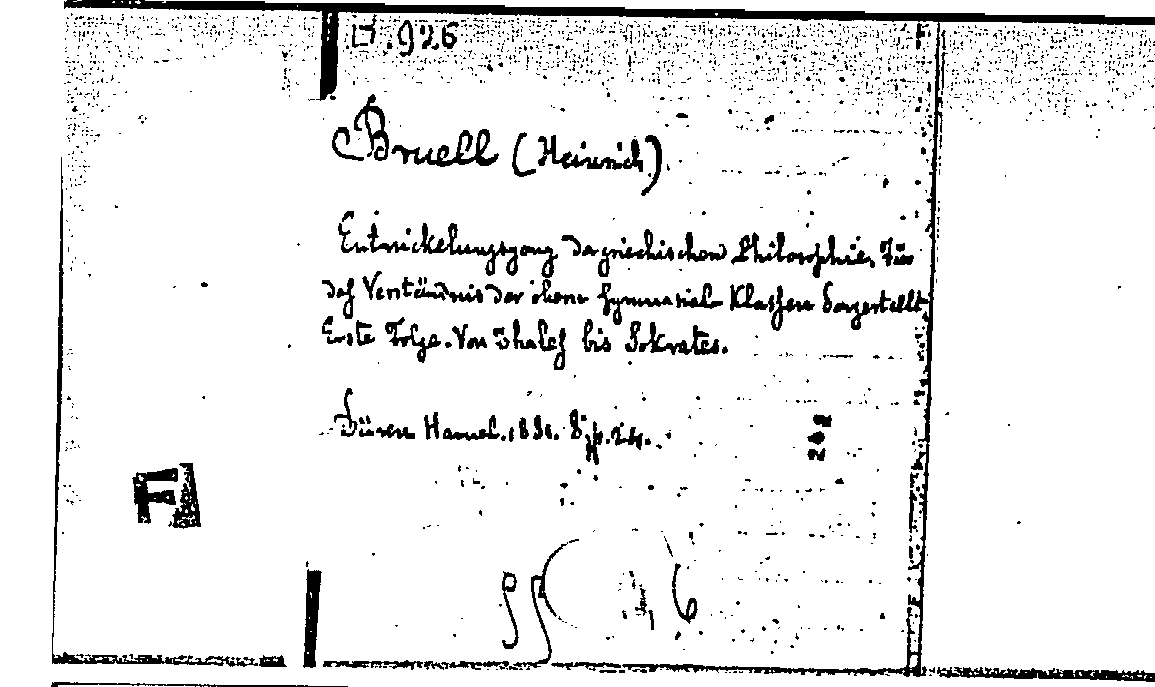 .926
Bruell (Heinrich).
Entwickelungsgang der griechischen Philosophie. Für
das Verständnis der oberen Gymnasial-Klassen dargestellt
Erste Folge. Von Thales bis Sokrates.
Düren Hamel.
268